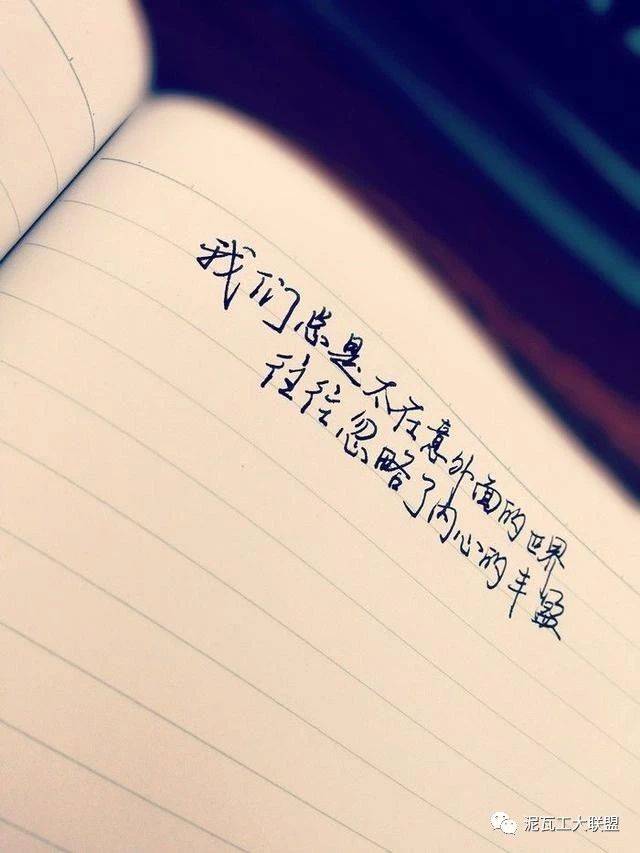 我们总是太在意外面的世界
往往忽略了内心的丰盈
泥瓦工大联盟